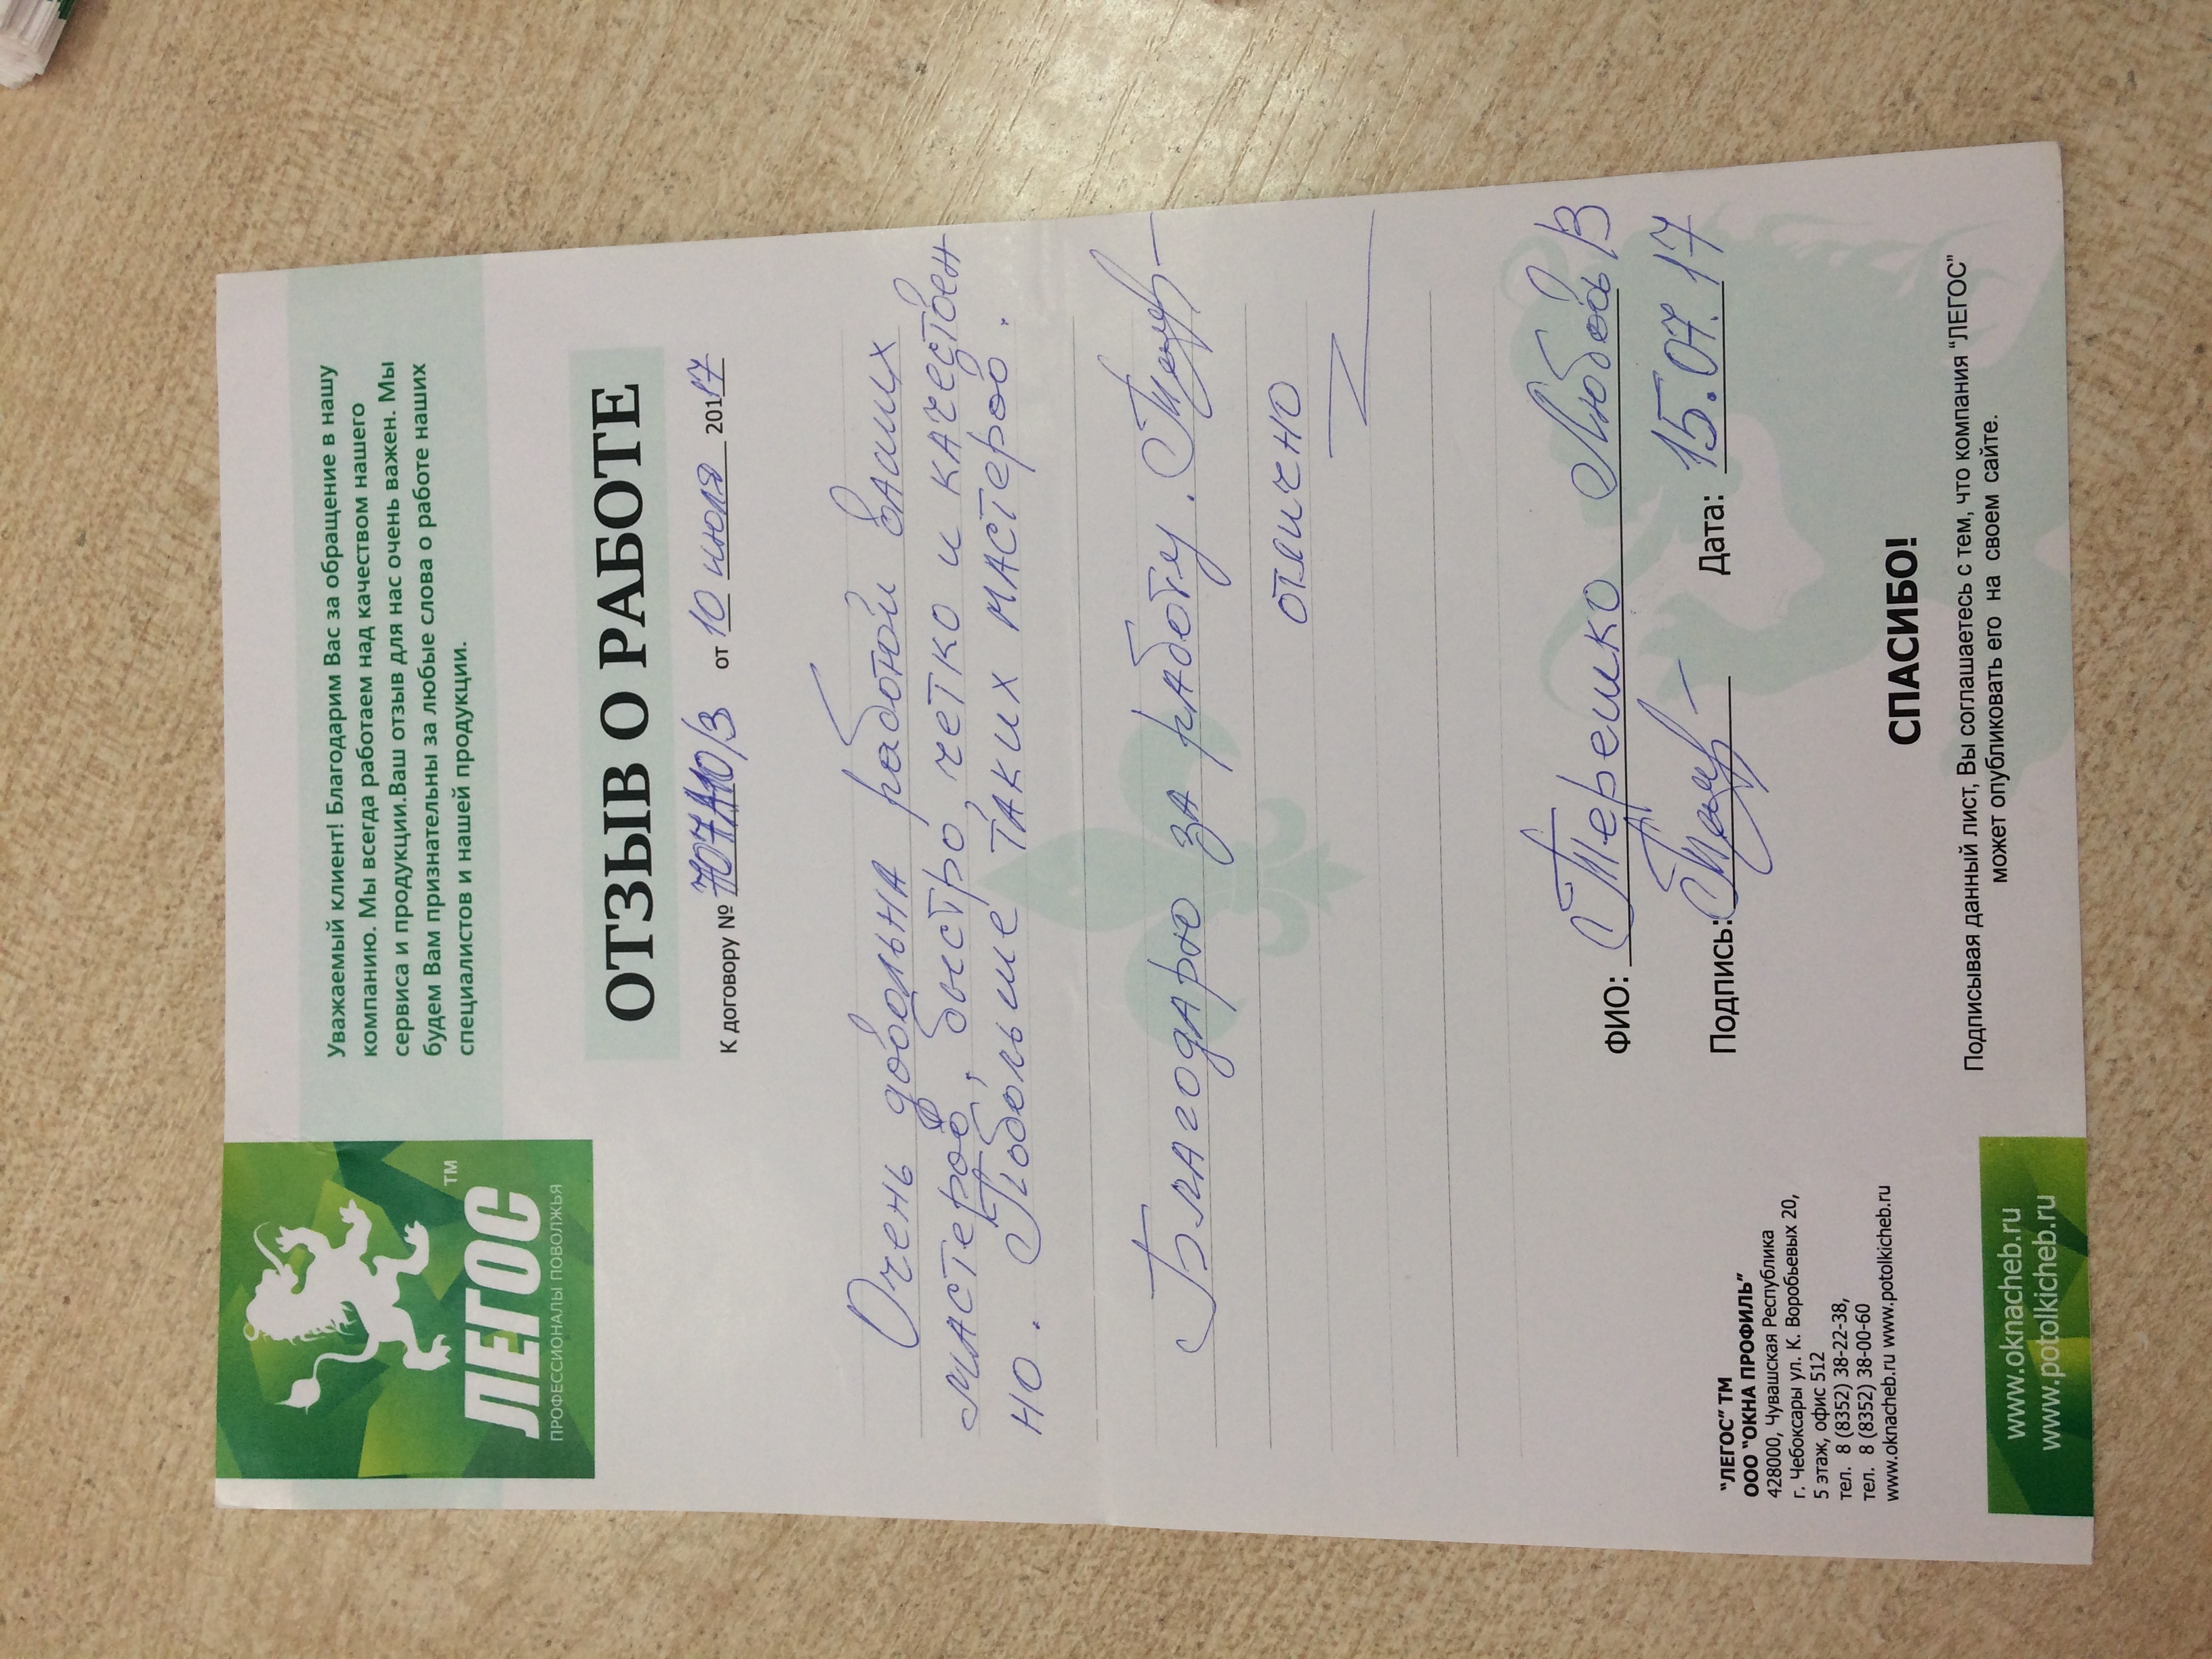 ЛЕГОС TM
ПРОФЕССИОНАЛЫ ПОВОЛЖЬЯ
Уважаемый клиент! Благодарим Вас за обращение в нашу
компанию. Мы всегда работаем над качеством нашего
сервиса и продукции.Ваш отзыв для нас очень важен. Мы
будем Вам признательны за любые слова о работе наших
специалистов и нашей продукции.
ОТЗЫВ О РАБОТЕ
К договору № 707А10/3 от 10 июля 20117
Очень довольна работой ваших
мастеров, быстро, четко и качествен
но. Побольше таких мастеров.
Благодарю за работу.
отлично
ФИО: Терешко Любовь В
Подпись: Дата: 15.07.17
“ЛЕГОС” ТМ
ООО “ОКНА ПРОФИЛЬ”
428000, Чувашская Республика
г. Чебоксары ул. К. Воробьевых 20,
5 этаж, офис 512
тел. 8 (8352) 38-22-38,
тел. 8 (8352) 38-00-60
www.oknacheb.ru www.potolkicheb.ru
СПАСИБО!
Подписывая данный лист, Вы соглашаетесь с тем, что компания “ЛЕГОС”
может опубликовать его на своем сайте.
www.oknacheb.ru
www.potolkicheb.ru